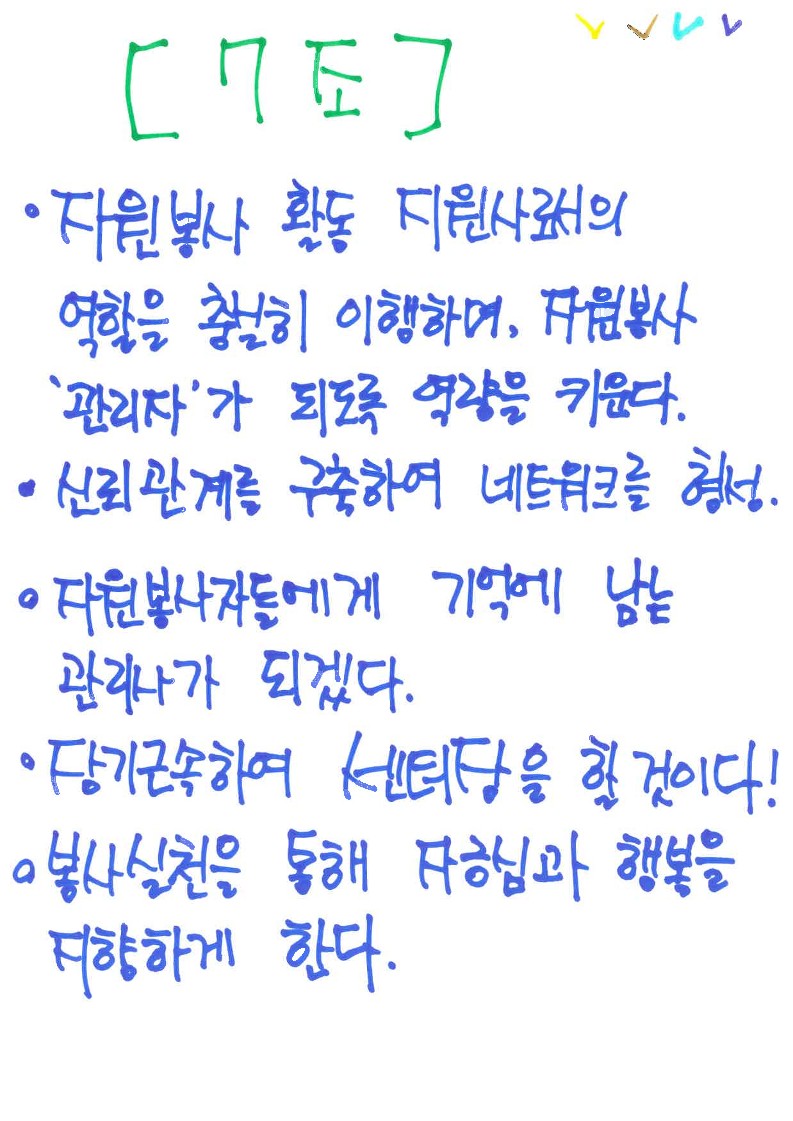 [ 7 조 ]
• 자원봉사 활동 지원사로서의
역할을 충실히 이행하며, 자원봉사
'관리자'가 되도록 역량을 키운다.
• 신뢰관계를 구축하여 네트워크를 형성.
• 자원봉사자들에게 기억에 남는
관리사가 되겠다.
• 장기근속하여 센터장을 할 것이다!
• 봉사실천을 통해 자긍심과 행복을
지향하게 한다.